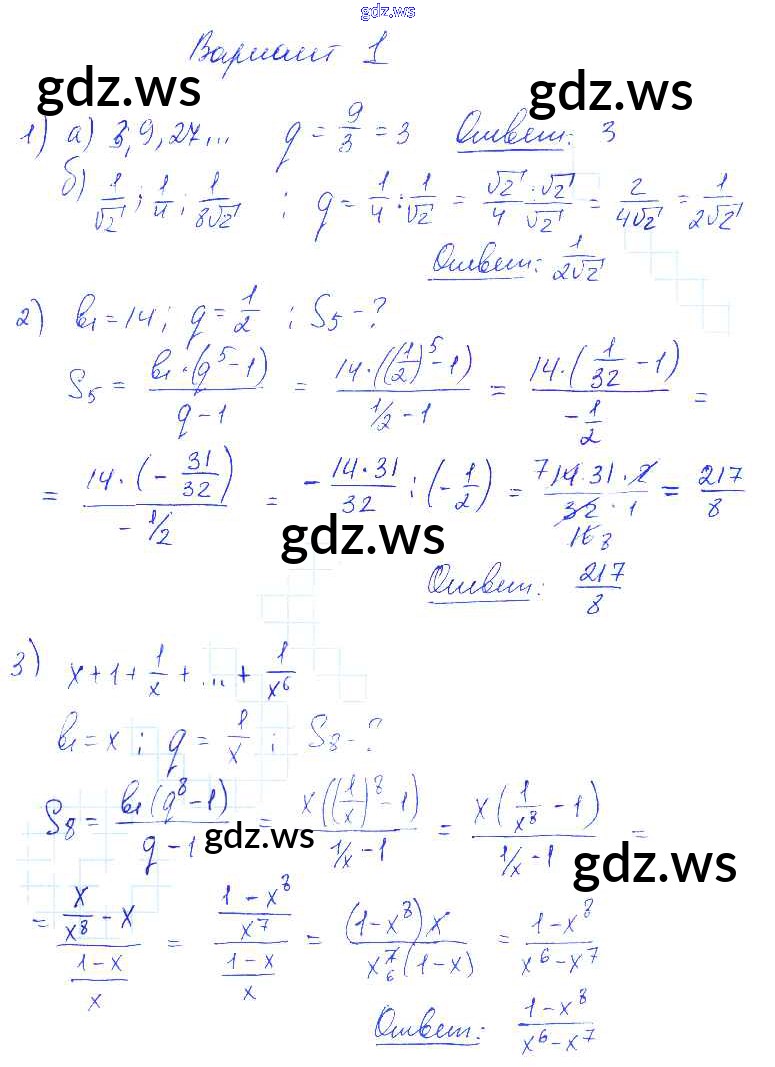 gdz.ws
Вариант 1
gdz.ws gdz.ws
1) а) 3, 9, 27, ... q = 9/3 = 3 Ответ: 3
б) 1/√2; 1/4; 1/(8√2); q = 1/4 : 1/√2 = (√2 · √2)/(4 √2) = 2/(4√2) = 1/(2√2)
Ответ: 1/(2√2)
2) b₁ = 14; q = 1/2; S₅ - ?
S₅ = (b₁·(q⁵-1))/(q-1) = (14·((1/2)⁵-1))/(1/2-1) = (14·(1/32 - 1))/(-1/2) =
= (14·(-31/32))/(-1/2) = -(14·31)/32 : (-1/2) = (7 14·31·2)/(32·1 16 8) = 217/8
gdz.ws
Ответ: 217/8
3) x + 1 + 1/x + ... + 1/x⁶
b₁ = x; q = 1/x; S₈ - ?
S₈ = (b₁(q⁸-1))/(q-1) = (x((1/x)⁸-1))/(1/x-1) = (x(1/x⁸ - 1))/(1/x-1) =
gdz.ws gdz.ws
= (x/x⁸ - x)/((1-x)/x) = ((1-x⁸)/x⁷)/((1-x)/x) = ((1-x⁸)x)/(x⁷ 6 (1-x)) = (1-x⁸)/(x⁶-x⁷)
Ответ: (1-x⁸)/(x⁶-x⁷)